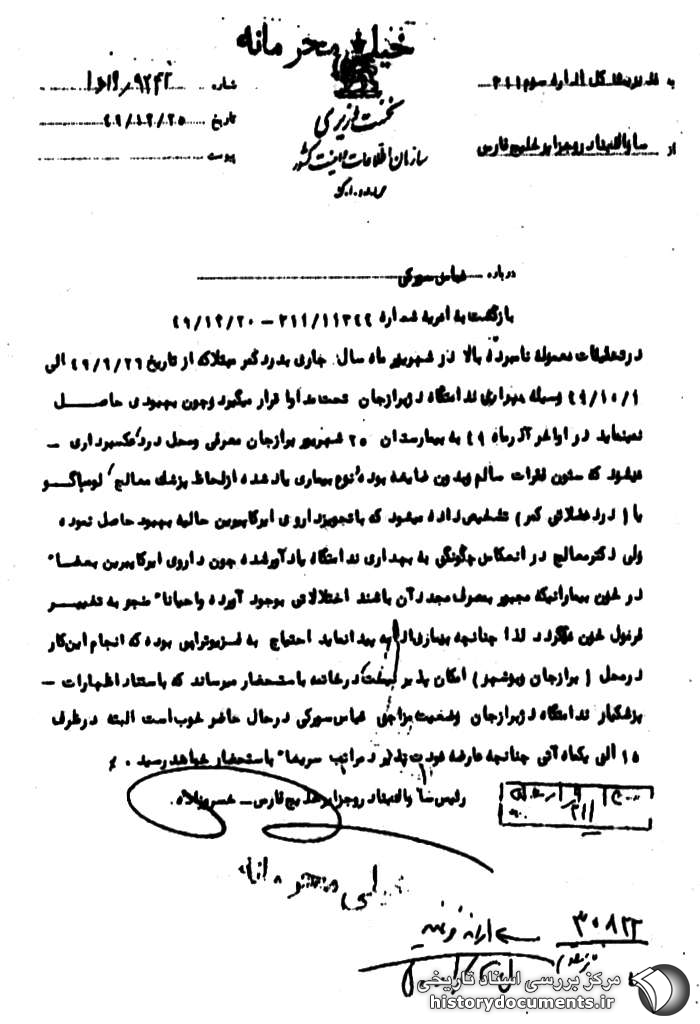 خیلی محرمانه
به مدیریت کل اداره سوم ۳۱۱
شماره ۹۲۴۲/
نخست وزیری
تاریخ ۴۹/۱۲/۲۵
سازمان اطلاعات و امنیت کشور
از ساواک بنادر و جزایر خلیج فارس
پیوست
س.ا.و.ا.ک
درباره عباس سورکی
بازگشت به امریه شماره ۳۱۱/۱۱۳۴۴ - ۴۹/۱۲/۲۰
در تحقیقات معموله نامبرده بالا در شهریور ماه سال جاری بدرد کمر مبتلا که از تاریخ ۴۹/۶/۲۶ الی
۴۹/۱۰/۱ وسیله بهداری ندامتگاه دژ برازجان تحت مداوا قرار میگیرد و چون بهبودی حاصل
نمینماید در اواخر آذر ماه ۴۹ به بیمارستان ۲۵ شهریور برازجان معرفی و محل درد عکسبرداری -
میشود که ستون فقرات سالم و بدون ضایعه بوده نوع بیماری یاد شده از لحاظ پزشک معالج لومباگو
یا ( درد عضلانی کمر ) تشخیص داده میشود که با تجویز داروی ایرکاپیرین حالیه بهبود حاصل نموده
ولی دکتر معالج در انعکاس چگونگی به بهداری ندامتگاه یادآور شده چون داروی ایرکاپیرین بعضاً
در خون بیمارانیکه مجبور بمصرف مجدد آن باشند اختلالاتی بوجود آورده و احیاناً منجر به تغییر
فرمول خون میگردد لذا چنانچه بیماری ادامه پیدا نماید احتیاج به فیزیوتراپی بوده که انجام این کار
در محل ( برازجان و بوشهر ) امکان پذیر نیست در خاتمه باستحضار میرساند که باستناد اظهارات -
پزشکیار ندامتگاه دژ برازجان وضعیت مزاجی عباس سورکی در حال حاضر خوب است البته در ظرف
۱۵ الی یکماه آتی چنانچه عارضه عودت پذیرد مراتب سریعاً باستحضار خواهد رسید . ۶
رئیس ساواک بنادر و جزایر خلیج فارس -
۳۱۱
خیلی محرمانه
۳۰۸۲۲
مرکز بررسی اسناد تاریخی
historydocuments.ir